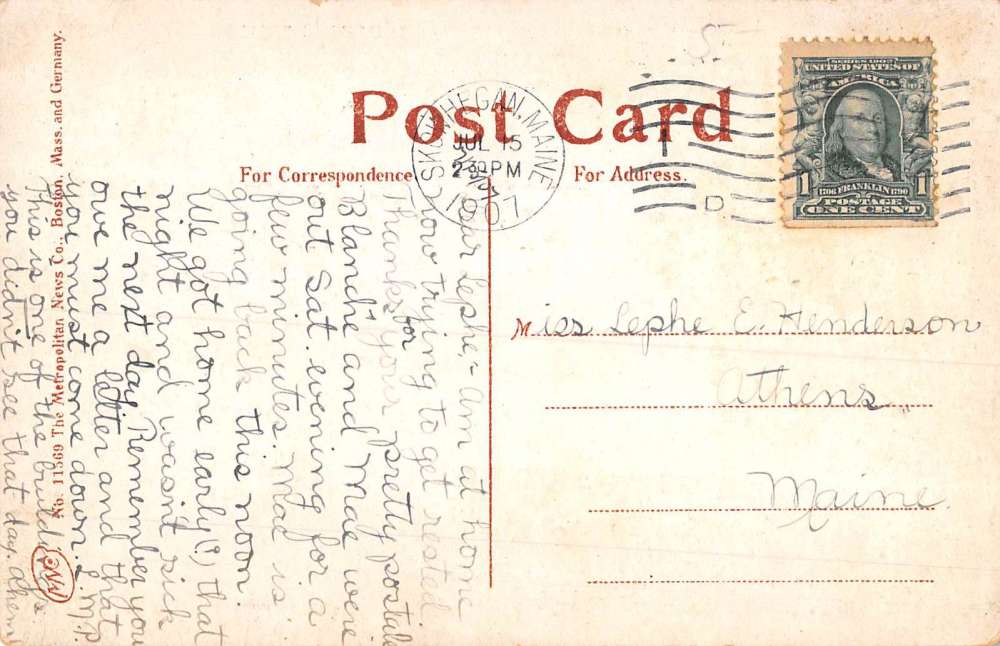 Post Card
For Correspondence
For Address.
SKOWHEGAN, MAINE
JUL 15
2 30 PM
1907
D
SERIES 1902
UNITED STATES OF
AMERICA
1
1
1706 FRANKLIN 1790
POSTAGE
ONE CENT
Miss Lephe E. Henderson
Athens
Maine
Dear Lephe,- Am at home
now trying to get rested
Thanks for your pretty postal
Blanche and Mae were
out Sat evening for a
few minutes. Mae is
going back this noon.
We got home early(!) that
night and wasn't sick
the next day. Remember you
owe me a letter and that
you must come down. L.M.P.
This is one of the buildings
you didn't see that day.
No. 11569 The Metropolitan News Co., Boston, Mass. and Germany.